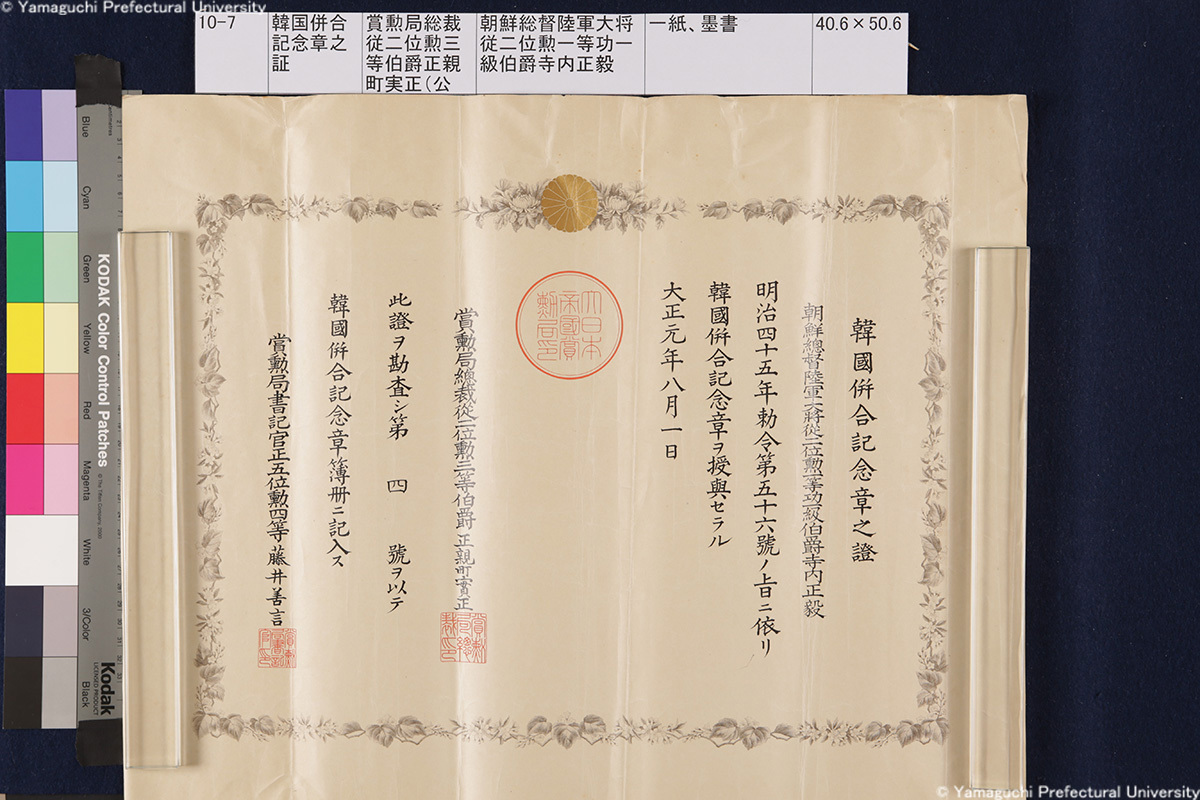 © Yamaguchi Prefectural University
10-7
韓国併合
記念章之
証
賞勲局総裁
従二位勲三
等伯爵正親
町実正(公
朝鮮総督陸軍大将
従二位勲一等功一
級伯爵寺内正毅
一紙、墨書
40.6×50.6
韓國併合記念章之證
朝鮮總督陸軍大將從二位勲一等功一級伯爵寺内正毅
明治四十五年勅令第五十六號ノ旨ニ依リ
韓國併合記念章ヲ授與セラル
大正元年八月一日
大日本
帝國賞
勲局印
賞勲局總裁從二位勲三等伯爵正親町實正
賞勲
局總
裁印
此證ヲ勘査シ第四號ヲ以テ
韓國併合記念章簿册ニ記入ス
賞勲局書記官正五位勲四等藤井善言
Blue
Cyan
Green
Yellow
Red
Magenta
White
3/Color
Black
KODAK Color Control Patches
Kodak
LICENSED PRODUCT
© Yamaguchi Prefectural University